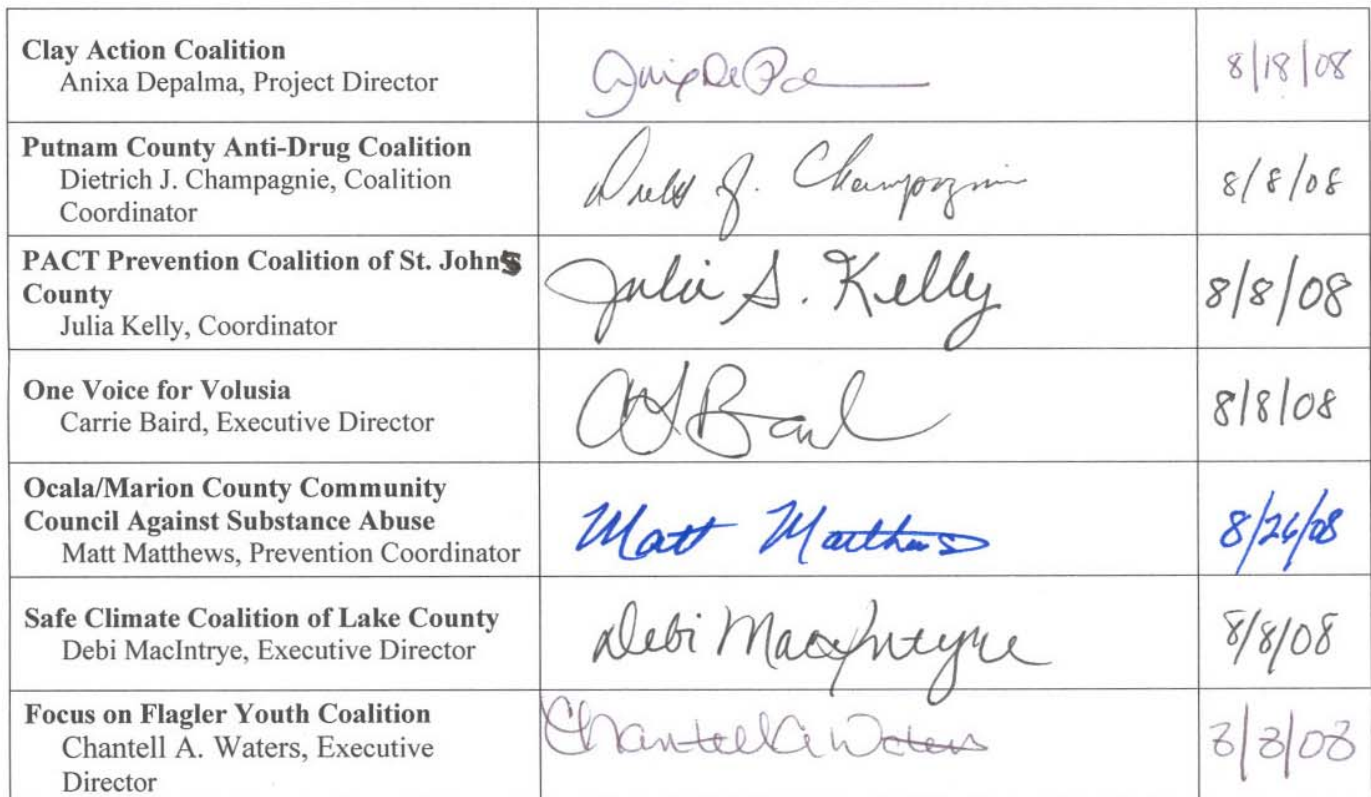 Clay Action Coalition
Anixa Depalma, Project Director
8/18/08
Putnam County Anti-Drug Coalition
Dietrich J. Champagnie, Coalition
Coordinator
J. Champagnie
8/8/08
PACT Prevention Coalition of St. Johns
County
Julia Kelly, Coordinator
Julia S. Kelly
8/8/08
One Voice for Volusia
Carrie Baird, Executive Director
8/8/08
Ocala/Marion County Community
Council Against Substance Abuse
Matt Matthews, Prevention Coordinator
Matt Matthews
8/26/08
Safe Climate Coalition of Lake County
Debi MacIntrye, Executive Director
Debi MacIntyre
8/8/08
Focus on Flagler Youth Coalition
Chantell A. Waters, Executive
Director
Chantell A Waters
8/8/08